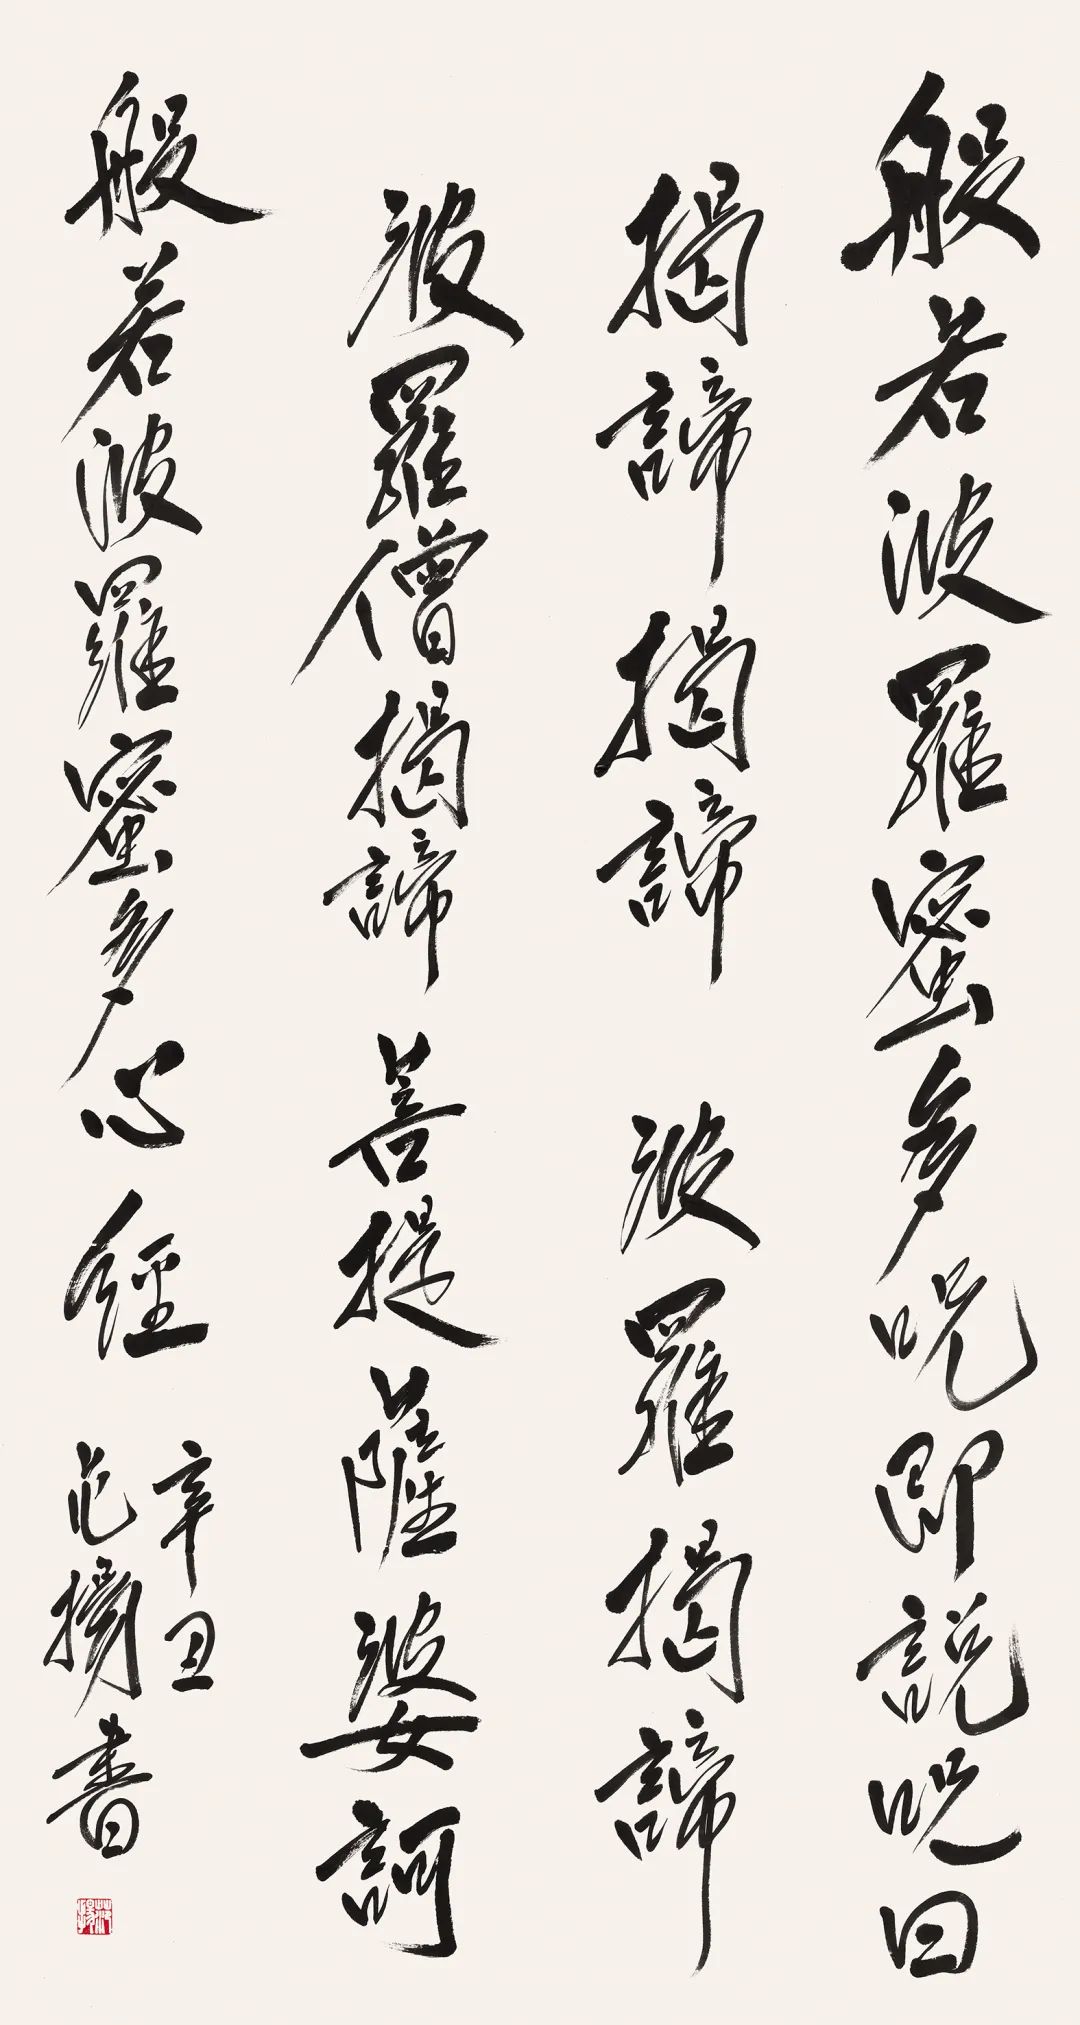 般若波羅蜜多呪即說呪曰
揭諦揭諦 波羅揭諦
波羅僧揭諦 菩提薩婆訶
般若波羅蜜多心經
辛丑
范揚書